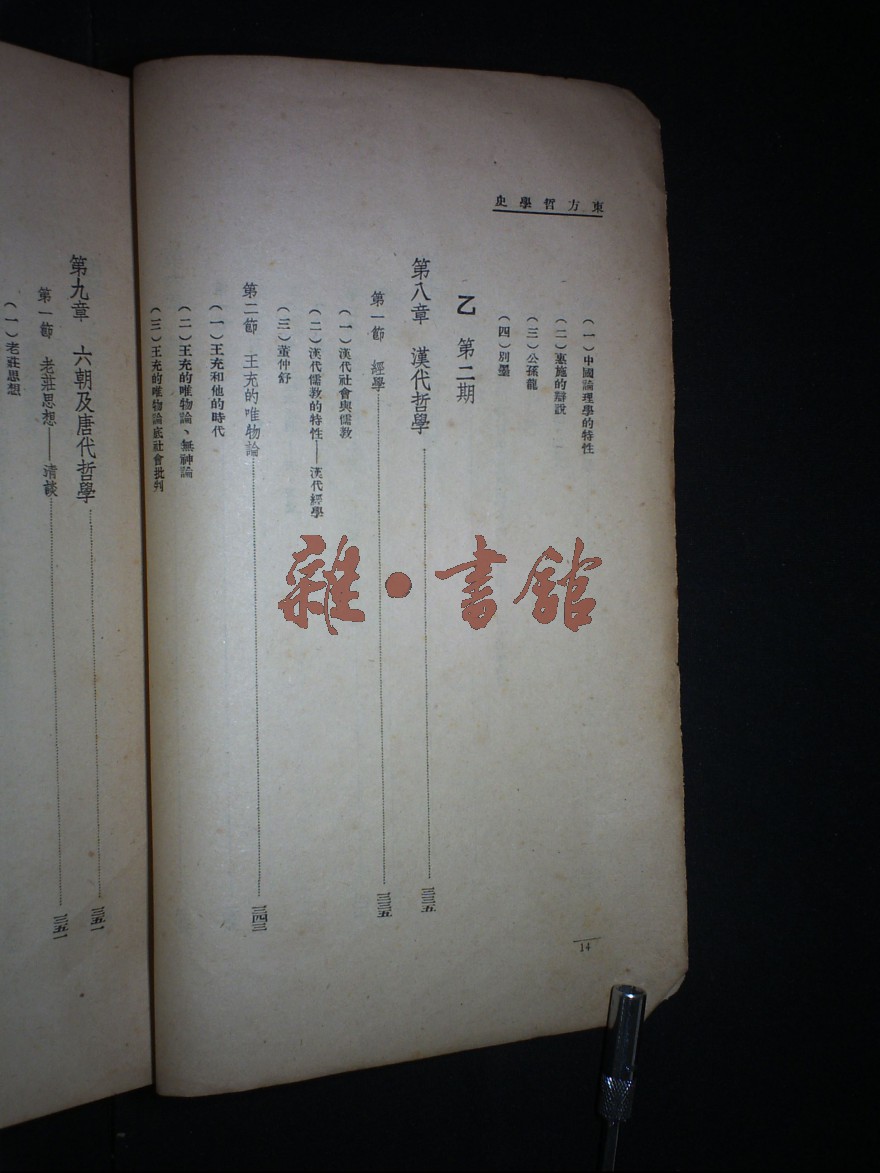 東方哲學史
(一)中國論理學的特性
(二)惠施的辯說
(三)公孫龍
(四)別墨
乙 第二期
第八章 漢代哲學……三三五
第一節 經學……三三五
(一)漢代社會與儒教
(二)漢代儒教的特性——漢代經學
(三)董仲舒
第二節 王充的唯物論……三四三
(一)王充和他的時代
(二)王充的唯物論、無神論
(三)王充的唯物論底社會批判
14
第九章 六朝及唐代哲學……三五一
第一節 老莊思想——清談……三五一
(一)老莊思想
雜·書館